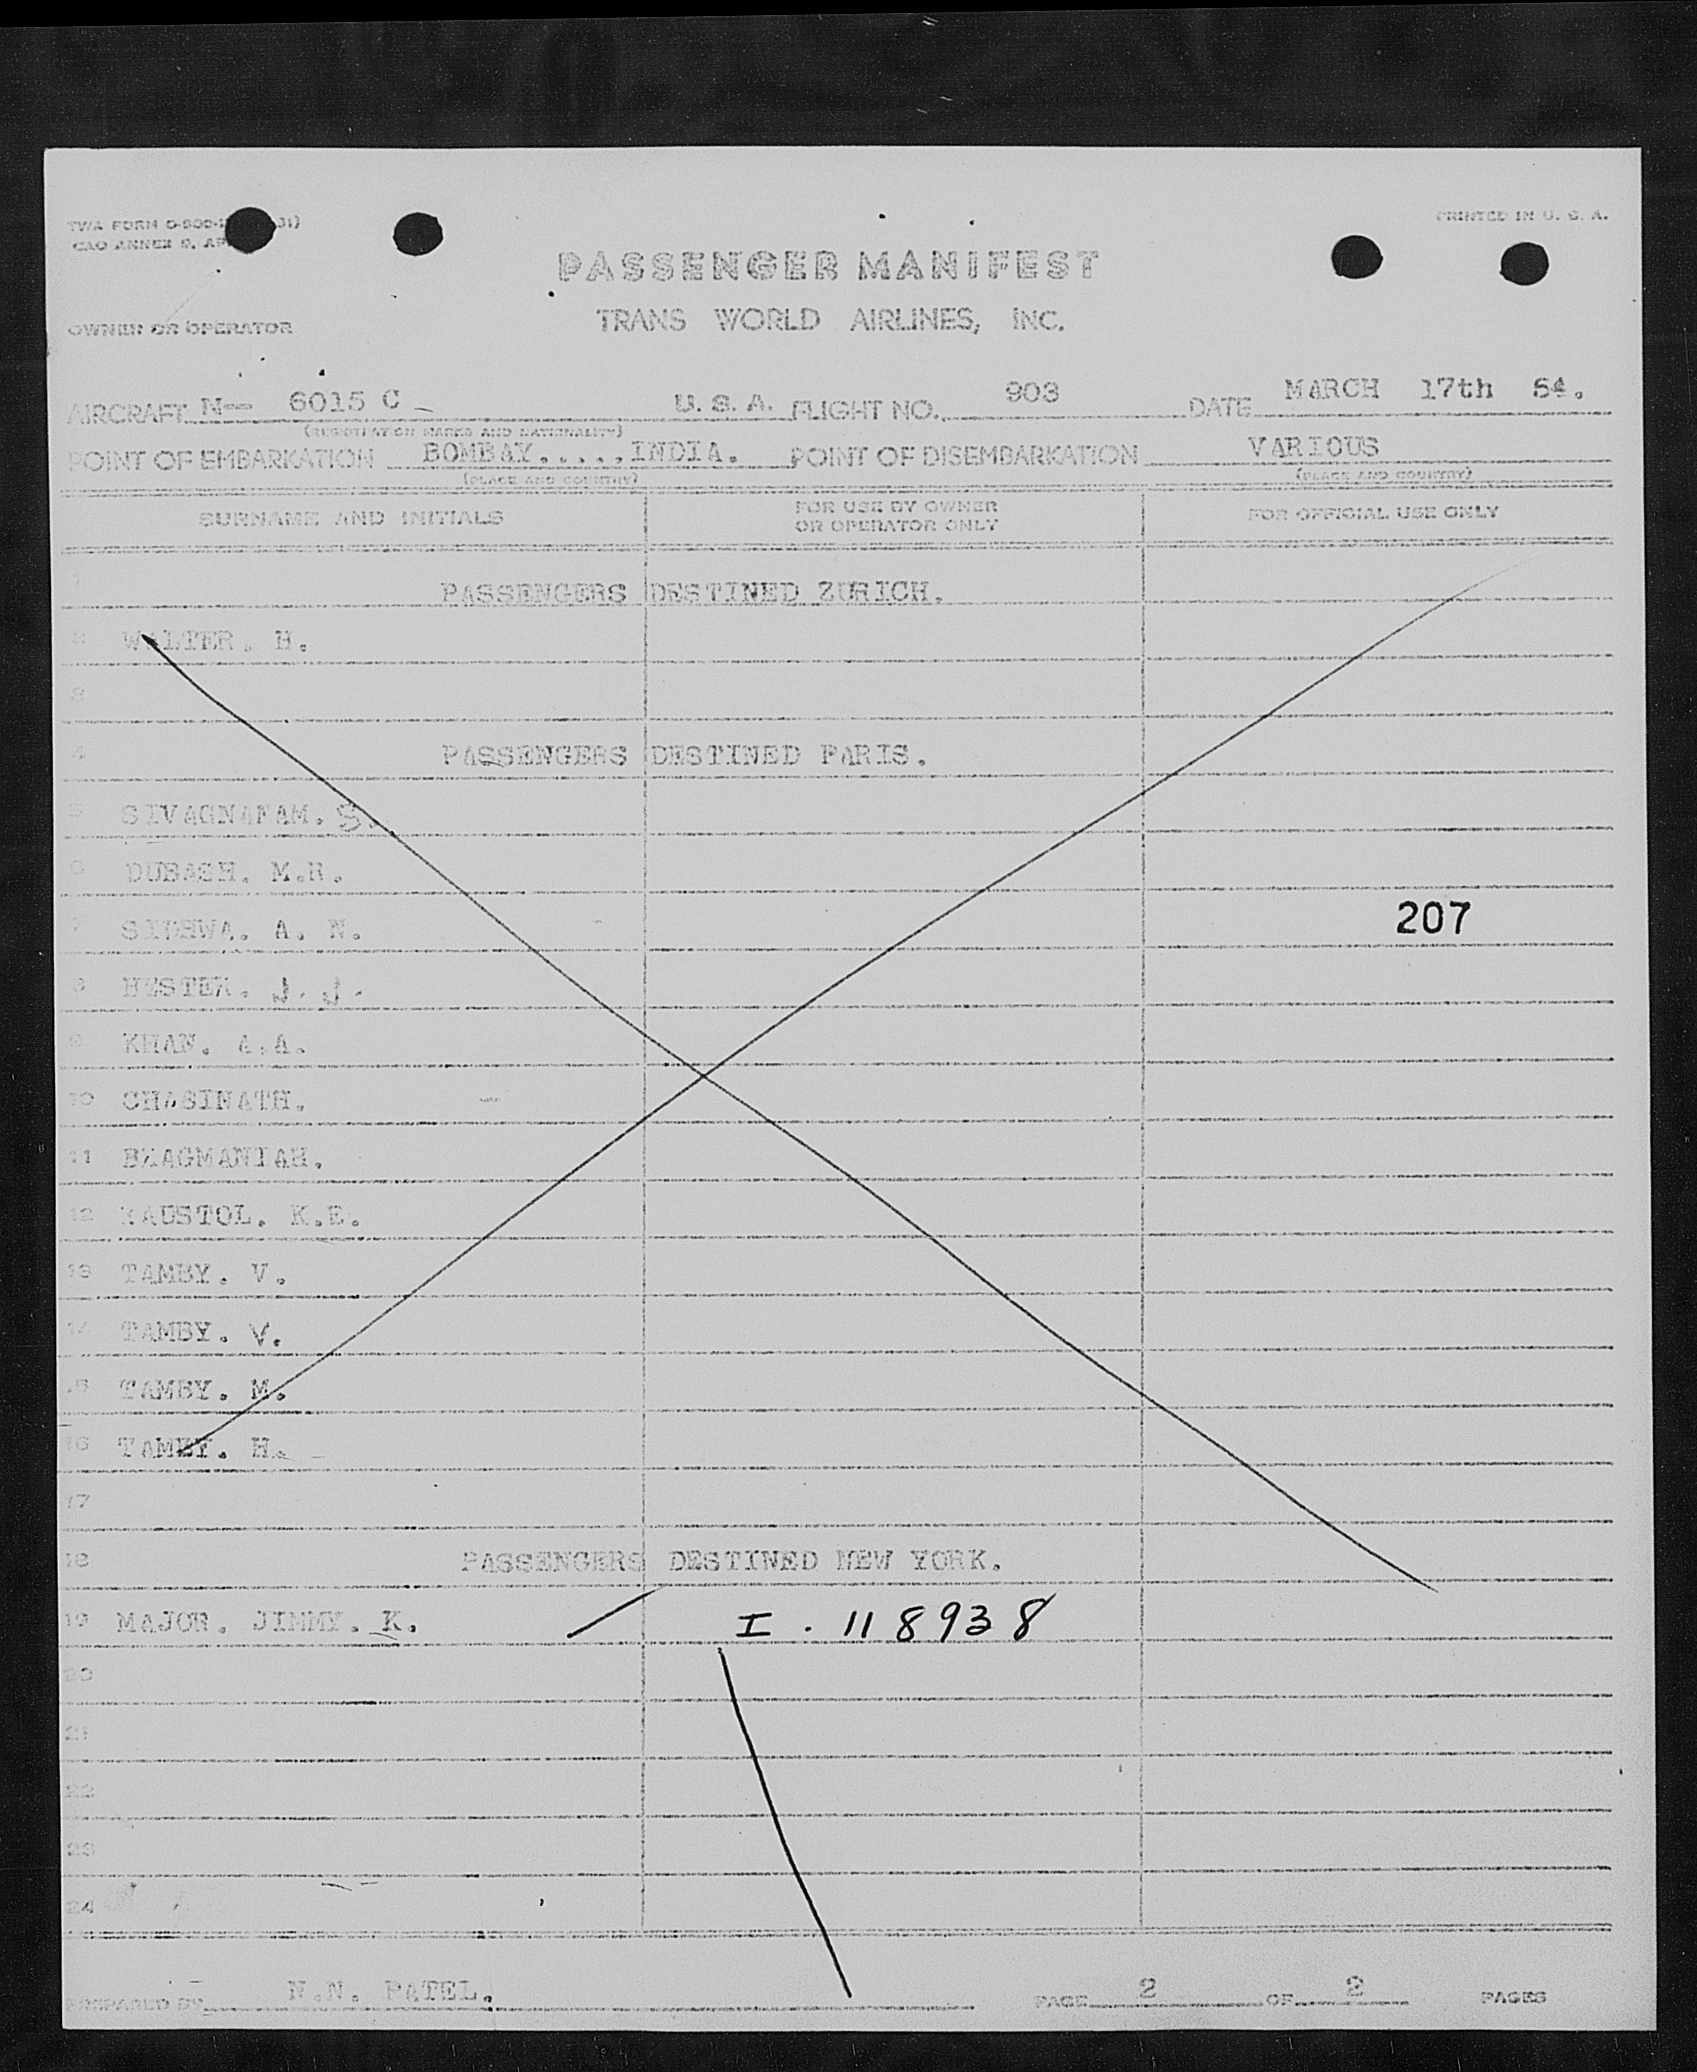 TWA FORM O-900- 31)
PRINTED IN U. S. A.
CAO ANNEX 9, AP
PASSENGER MANIFEST
OWNER OR OPERATOR
TRANS WORLD AIRLINES, INC.
AIRCRAFT N-- 6015 C U. S. A. FLIGHT NO. 903 DATE MARCH 17th 54.
(REGISTRATION MARKS AND NATIONALITY)
POINT OF EMBARKATION BOMBAY.....,INDIA. POINT OF DISEMBARKATION VARIOUS
(PLACE AND COUNTRY) (PLACE AND COUNTRY)
SURNAME AND INITIALS FOR USE BY OWNER OR OPERATOR ONLY FOR OFFICIAL USE ONLY
1 PASSENGERS DESTINED ZURICH.
2 WALTER. H.
3
4 PASSENGERS DESTINED PARIS.
5 S.
6 DUBASH. M.H.
7 A. N. 207
8 J. J.
9 KHAN. A.A.
10 CHASINATH.
11
12 K.E.
13 TAMBY. V.
14 TAMBY. V.
15 TAMBY. M.
16 TAMBY. H.
17
18 PASSENGERS DESTINED NEW YORK.
19 MAJOR. JIMMY. K. I. 118938
20
21
22
23
24
PREPARED BY N.N. PATEL. PAGE 2 OF 2 PAGES